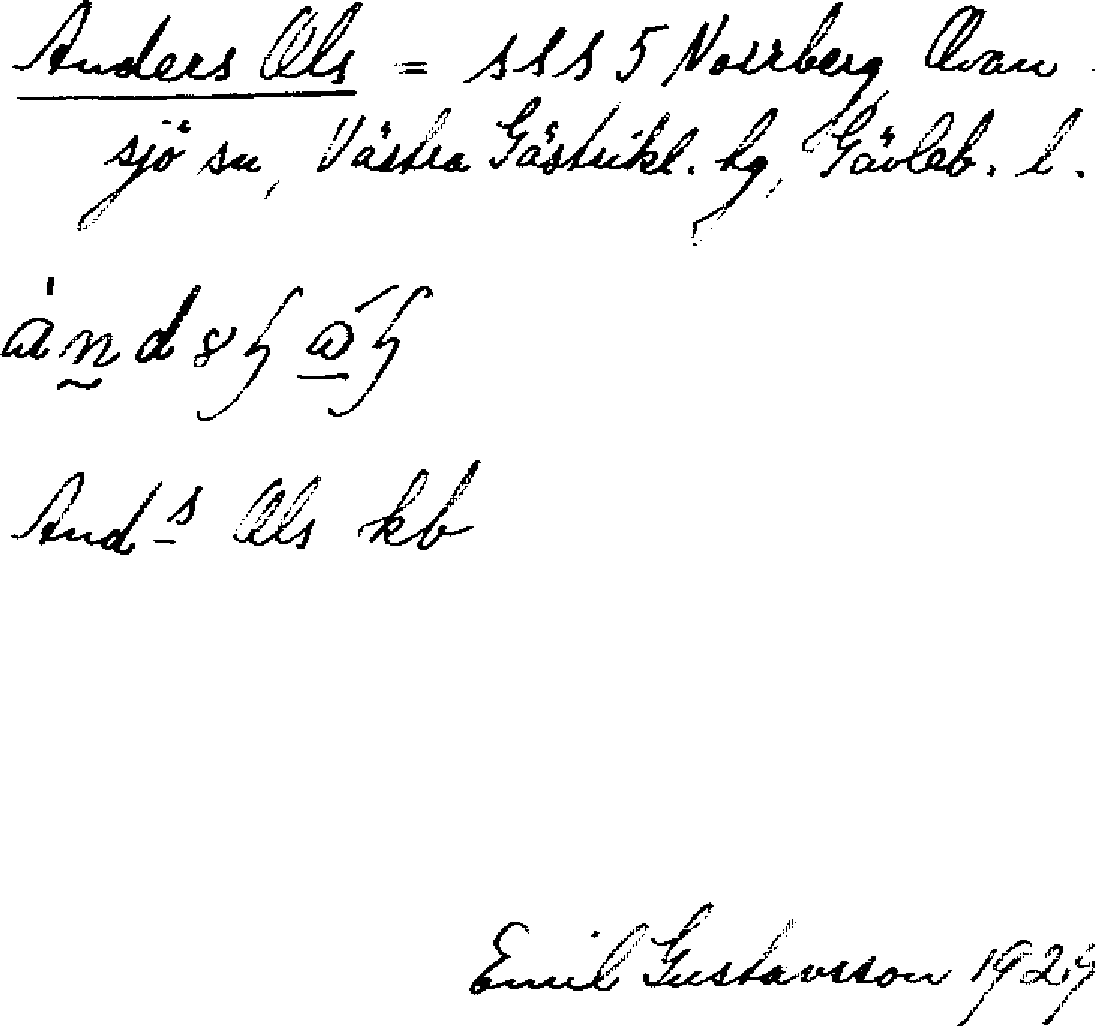 Anders Ols = s s s 5 Norrberg, Ovan-
sjö sn, Västra Gästrikl. hg, Gävleb. l.
And s Ols kb
Emil Gustavsson 1929